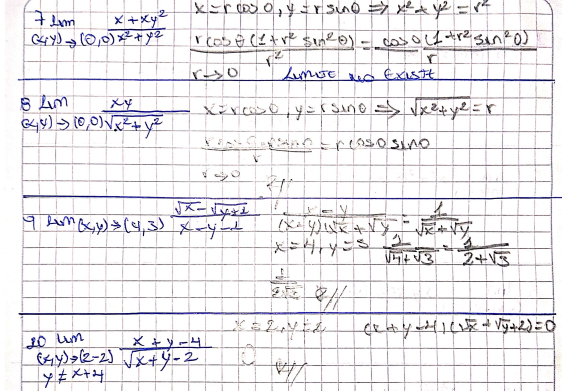 7 Lim (x,y)→(0,0) x+xy²/x²+y² x=r cos θ, y=r sin θ ⇒ x²+y²=r²
r cos θ (1+r² sin² θ)/r² = cos θ (1+r² sin² θ)/r
r→0 Limite no Existe
8 Lim (x,y)→(0,0) xy/√x²+y² x=r cos θ, y=r sin θ ⇒ √x²+y²=r
= r cos θ sin θ
r→0
9 Lim (x,y)→(4,3) √x-√y+1/x-y-1 x-y/(x-y)(√x+√y = 1/√x+√y
x=4, y=3 1/√4+√3 = 1/2+√3
10 Lim (x,y)→(2-2) x+y-4/√x+y-2 x=2, y=2
y≠x+4